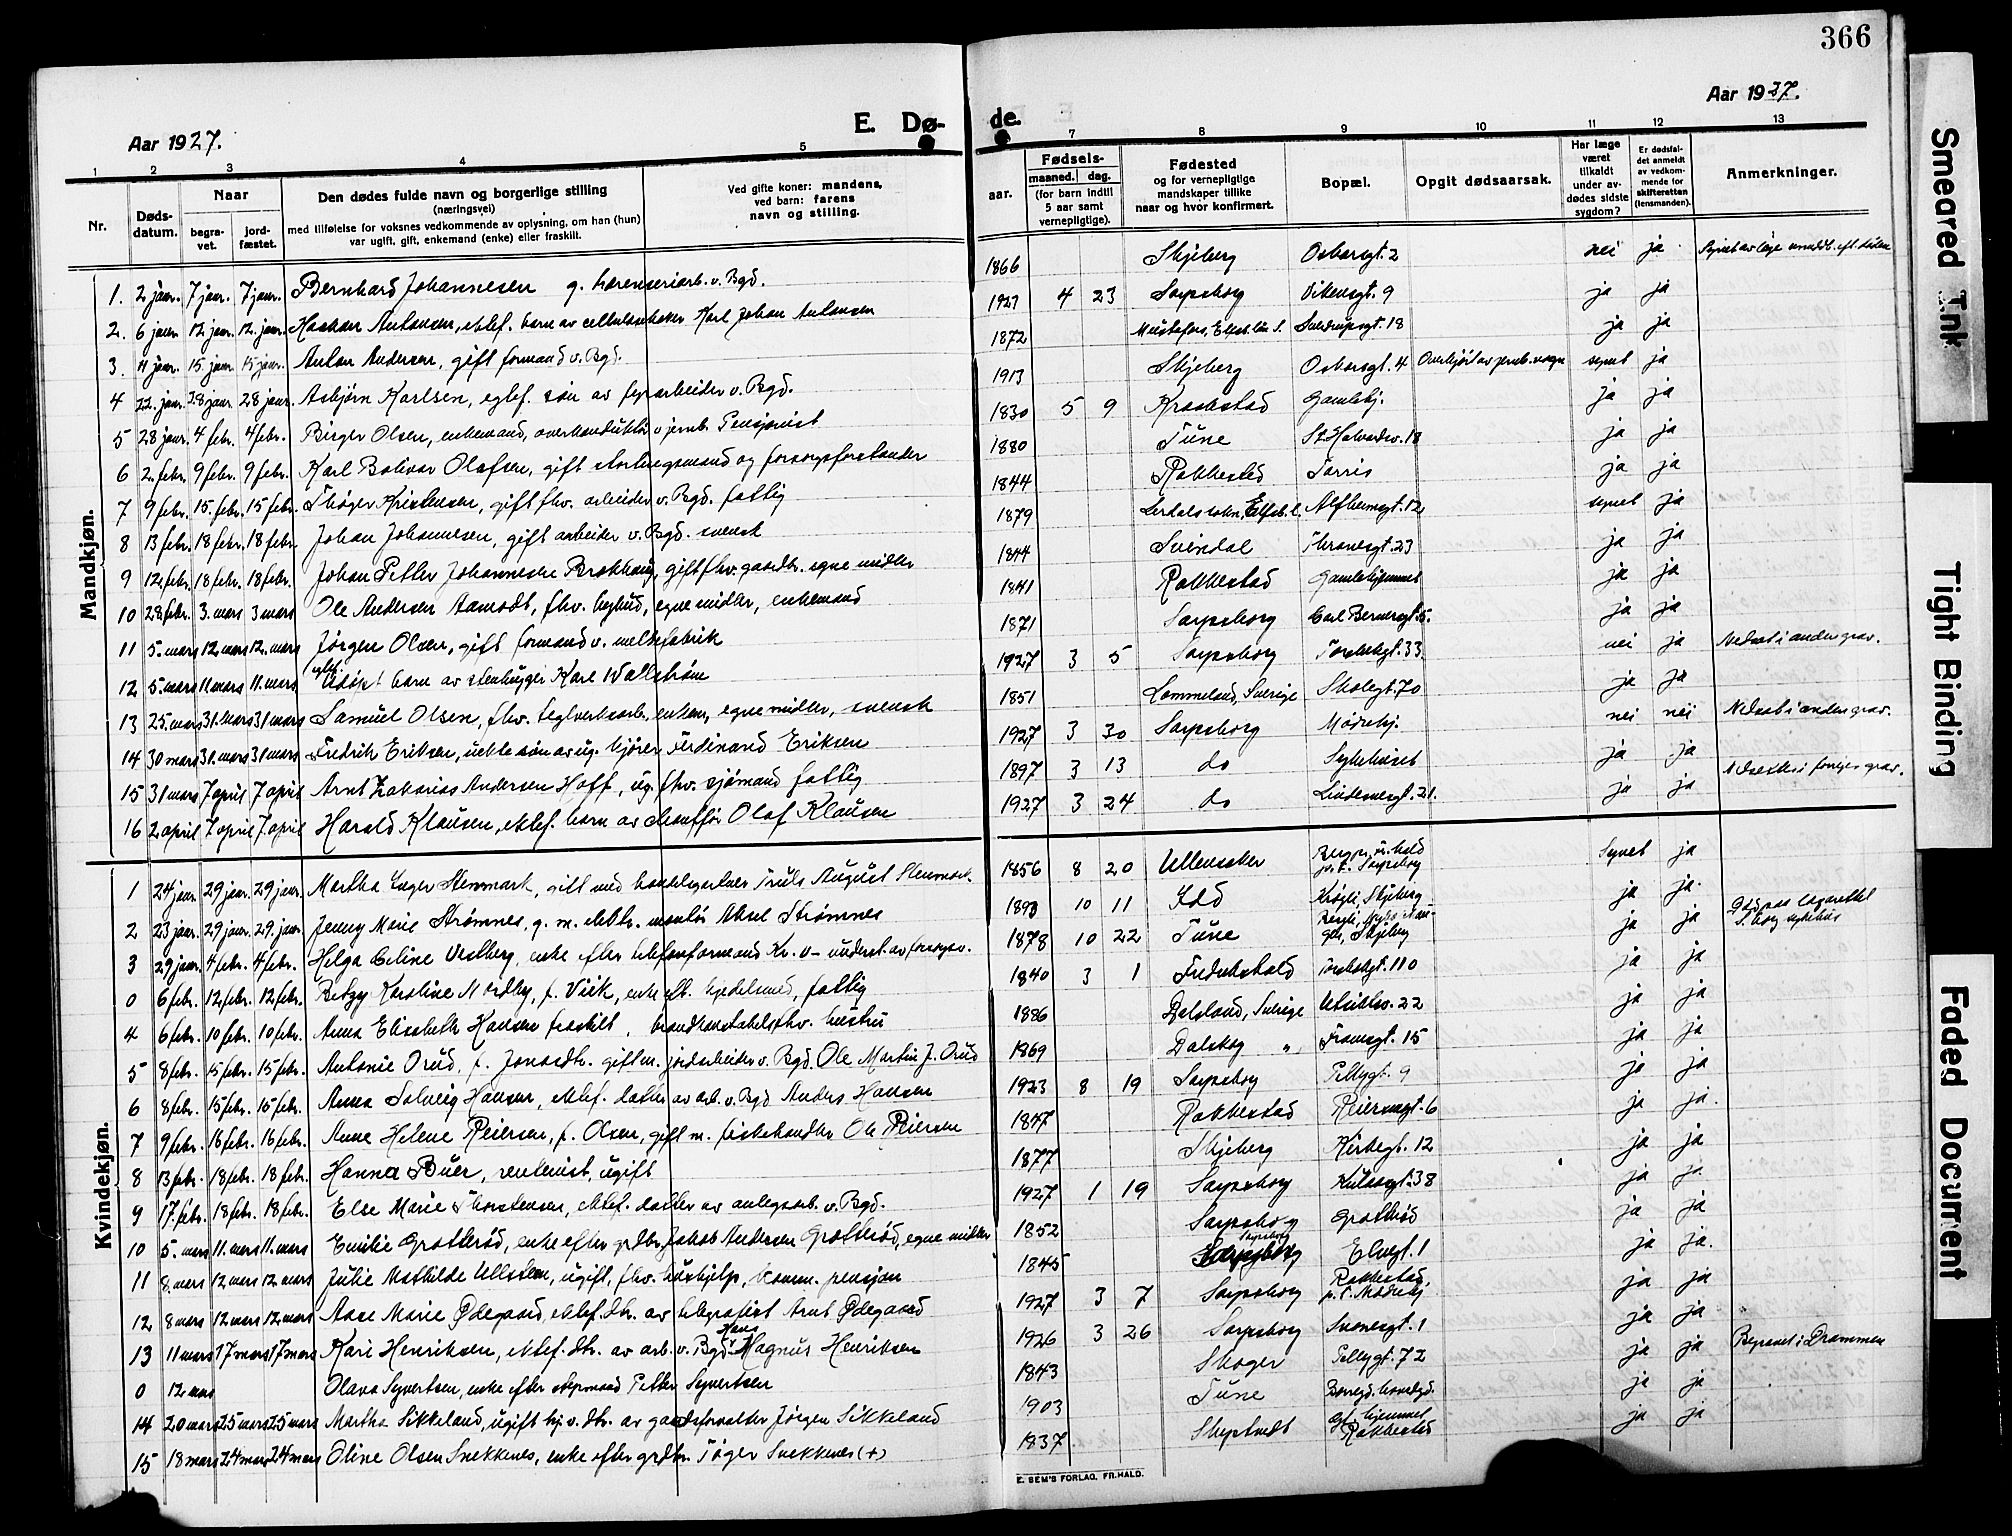 366
Aar 1927.
E. Dø-
de.
Aar 1927.
1 2 3 4 5
7 8 9 10 11 12 13
Nr.
Døds-
datum.
Naar
begra-
vet.
jord-
fæstet.
Den dødes fulde navn og borgerlige stilling
(næringsvei)
med tilføielse for voksnes vedkommende av oplysning, om han (hun)
var ugift, gift, enkemand (enke) eller fraskilt.
Ved gifte koner: mandens,
ved barn: farens
navn og stilling.
aar.
Fødsels-
maaned. dag.
(for barn indtil
5 aar samt
vernepligtige).
Fødested
og for vernepligtige
mandskaper tillike
naar og hvor konfirmert.
Bopæl.
Opgit dødsaarsak.
Har læge
været
tilkaldt
under av-
dødes sidste
sygdom?
Er dødsfal-
det anmeldt
av vedkom-
mende for
skifteretten
(lensmanden).
Anmerkninger.
Mandkjøn.
1. 2 jaar. 7 jaar. 7 jaar. Bernhard Johannesen g. v. Bgd. 1866 Skjeberg Oscarsgt. 2 nei ja
2. 6 jaar. 12. jaar. 12. jaar. Haakan Antonsen, ektef. barn av cellulosekoker Karl Johan Antonsen 1927 4 23 Sarpsborg Vikensgt. 9 ja ja
3. 11 jaar. 15. jaar. 15 jaar. Anton Andersen, gift formand v. Bgd. 1872 Sverdrupsgt. 18 ja ja
4 22. jaar. 28 jaar. 28 jaar. Asbjørn Karlsen, egtef. søn av arbeider v. Bgd. 1913 Skjeberg Oscarsgt. 4 Overkjørt av jernb. vogn synet ja
5 28 jaar. 4 febr. 4 febr. Birger Olsen, enkemand, overkonduktør v jernb. Pensjonist 1830 5 9 Krokstad Gamlehj. ja ja
6 2. febr. 9 febr. 9 febr. Karl Bolivar Olafsen, gift stortingsmand og forsorgsforstander 1880 Tune St. Halvardsv. 18 ja ja
7 9 febr. 15. febr. 15 febr. Thøger Kristensen, gift fhv. arbeider v. Bgd. fattig 1844 Rakkestad Torris ja ja
8 13 febr. 18 febr. 18 febr. Johan Johannesen, gift arbeider v. Bgd. svensk 1879 Alfheimsgt. 12 synet ja
9 12. febr. 18 febr. 18 febr. Johan Petter Johannesen Brekhaug, gift fhv. gaardbr. egne midler 1844 Svindal Thranesgt. 23 ja ja
10 28 febr. 3. mars 3 mars Ole Andersen Aamodt, fhv. bybud, egne midler, enkemand 1841 Rakkestad Gamlehjemmet ja ja
11 5. mars 12 mars 12. mars Jørgen Olsen, gift formand v. melkefabrik 1871 Sarpsborg Carl Bernersgt. 5. ja ja
12 5. mars 11 mars 11. mars ektef. Udøpt barn av stenhugger Karl Wallstrøm 1927 3 5 Sarpsborg Torsbekgt. 33. nei ja Nedsat i anden grav.
13 25. mars 31. mars 31 mars Samuel Olsen, fhv. teglverksarb., enkem., egne midler, svensk 1851 Lommeland, Sverige Skolegt. 70 ja ja
14 30 mars 31. mars 31 mars Fredrik Eriksen, uekte søn av ug. kjører Ferdinand Eriksen 1927 3 30 Sarpsborg Mødrehj. nei nei Nedsat i anden grav.
15 31 mars 7 april 7 april Arnt Zakarias Andersen Hoff, ug. fhv. sjømand fattig 1897 3 13 do Sykehuset ja ja
16 2 april 7 april 7 april Harald Klausen, ektef. barn av chauffør Olaf Klausen 1927 3 24 do Lindemesgt. 21. ja ja
Kvindekjøn.
1 24 jaar. 29 jaar. 29 jaar. Martha Inger Stenmark, gift med Truls August Stenmark. 1856 8 20 Ullensaker Sarpsborg Synet ja
2 23 jaar. 29 jaar. 29. jaar. Jenny Marie Strømnes, g. m. elektr. montør Aksel Strømnes 1893 10 11 Idd Skjeberg ja ja.
3 29 jaar. 4 febr. 4 febr. Helga Celine Vestberg, enke efter telefonformand Kr. V- underst. av forsorgsv. 1878 10 22 Tune Skjeberg ja ja
0 6 febr. 12 febr. 12 febr. Betzy Karoline Nordby, f. Viik, enke eft. kjedelsmed, fattig 1840 3 1 Fredrikstad Torsbekgt. 110 ja ja
4 6 febr. 10 febr. 10 febr. Anna Elisabeth Hansen fraskilt, brandkonstabels fhv. hustru 1886 Dalsland, Sverige Utsiktsv. 22 ja ja
5 8 febr. 15 febr. 15 febr. Antonie Orud, f. Jonasdtr. gift m. jordarbeider v. Bgd. Ole Martin J. Orud 1869 Dalskog " Framsgt. 15 ja ja
6 8 febr. 15 febr. 15 febr. Anna Solveig Hansen, ektef. datter av arb. v. Bgd Anders Hansen 1923 8 19 Sarpsborg Pellygt. 9 ja ja
7 9 febr. 16 febr. 16 febr. Anne Helene Reiersen, f. Olsen, gift m. fiskehandler Ole Reiersen 1847 Rakkestad Reiersensgt. 6 ja ja.
8 13 febr. 18 febr. 18 febr. Hanna Buer, rentenist, ugift 1877 Skjeberg Kirkegt. 12 ja ja
9 17. febr. 18 febr. 18 febr. Else Marie Thorstensen, ektef. datter av anlegsarb. v. Bgd. 1927 1 19 Sarpsborg Kulåsgt. 38 ja ja
10 5. mars 11. mars 11. mars Emilie Grotterød, enke efter grdbr. Jakob Andersen Grotterød, egne midler 1852 Sarpsborg Grotterød ja ja
11 8. mars 12 mars 12 mars Julie Mathilde Ullsten, ugift, fhv. hushjelp, komm. pensjon 1845 Sarpsborg Elvegt. 1 ja ja.
12 8 mars 12 mars 12 mars Aase Marie Ødegaard, ektef. dtr. av telegrafist Arnt Ødegaard 1927 3 7 Sarpsborg Rakkestad, p. t. Mødrehj ja ja
13 11 mars 17 mars 17 mars Kari Henriksen, ektef. dtr. av arb. v. Bgd. Hans Magnus Henriksen 1926 3 26 Sarpsborg Svanesgt. 1 ja ja
0 12 mars Olava Syvertsen, enke efter Petter Syvertsen 1843 Skoger Pellygt. 72 ja ja Begravet i Drammen
14 20 mars 25 mars 25 mars Martha Sikkeland, ugift hj. v. dtr. av gaardsforvalter Jørgen Sikkeland 1903 Tune ja ja
15 18 mars 24 mars 24 mars Oline Olsen Snekkenes, enke efter grdbr. Tøger Snekkenes (+) 1837 Skiptvedt Rakkestad ja ja
E. SEM'S FORLAG, FR.HALD.
Smeared Ink
Tight Binding
Faded Document